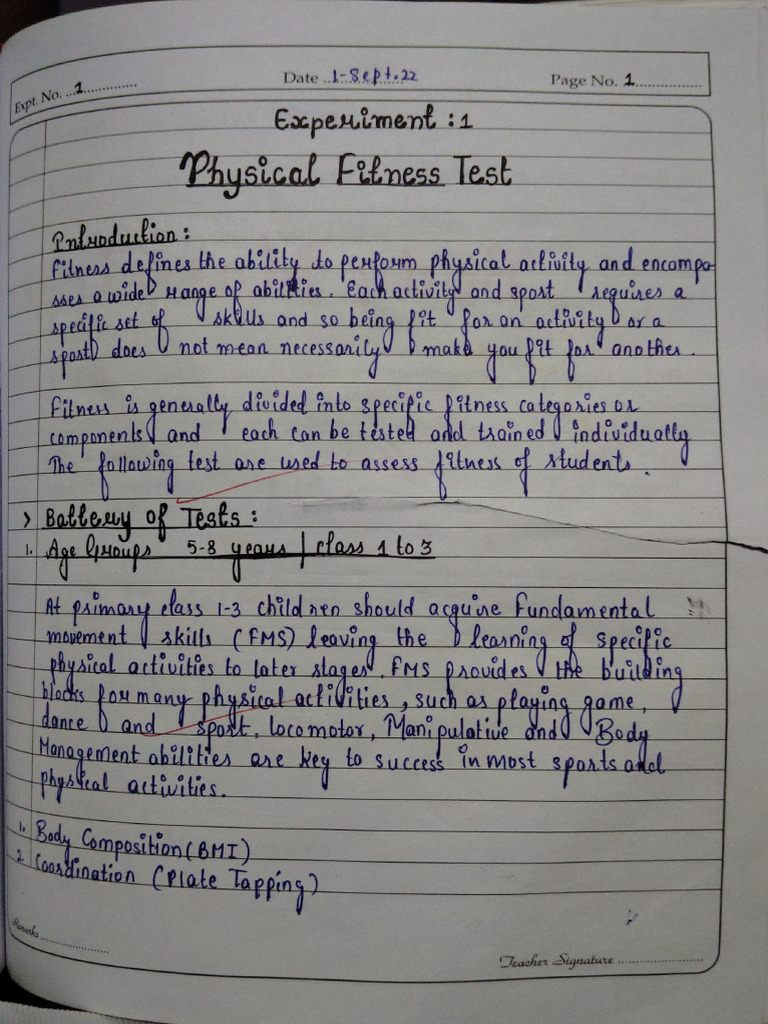 Expt. No. ...1..............
Date ..1-Sept.22
Page No. 1................
Experiment : 1
Physical Fitness Test
Introduction :
Fitness defines the ability to perform physical activity and encompa-
sses a wide range of abilities. Each activity and sport requires a
specific set of skills and so being fit for an activity or a
sport does not mean necessarily make you fit for another.
Fitness is generally divided into specific fitness categories or
components and each can be tested and trained individually
The following test are used to assess fitness of students.
> Battery of Tests :
1. Age Groups 5-8 years | class 1 to 3
At primary class 1-3 children should acquire Fundamental
movement skills (FMS) leaving the learning of specific
physical activities to later stages. FMS provides the building
blocks for many physical activities, such as playing game,
dance and sport. Locomotor, Manipulative and Body
Management abilities are key to success in most sports and
physical activities.
1. Body Composition (BMI)
2. Coordination (Plate Tapping)
Remarks ..................
Teacher Signature ......................